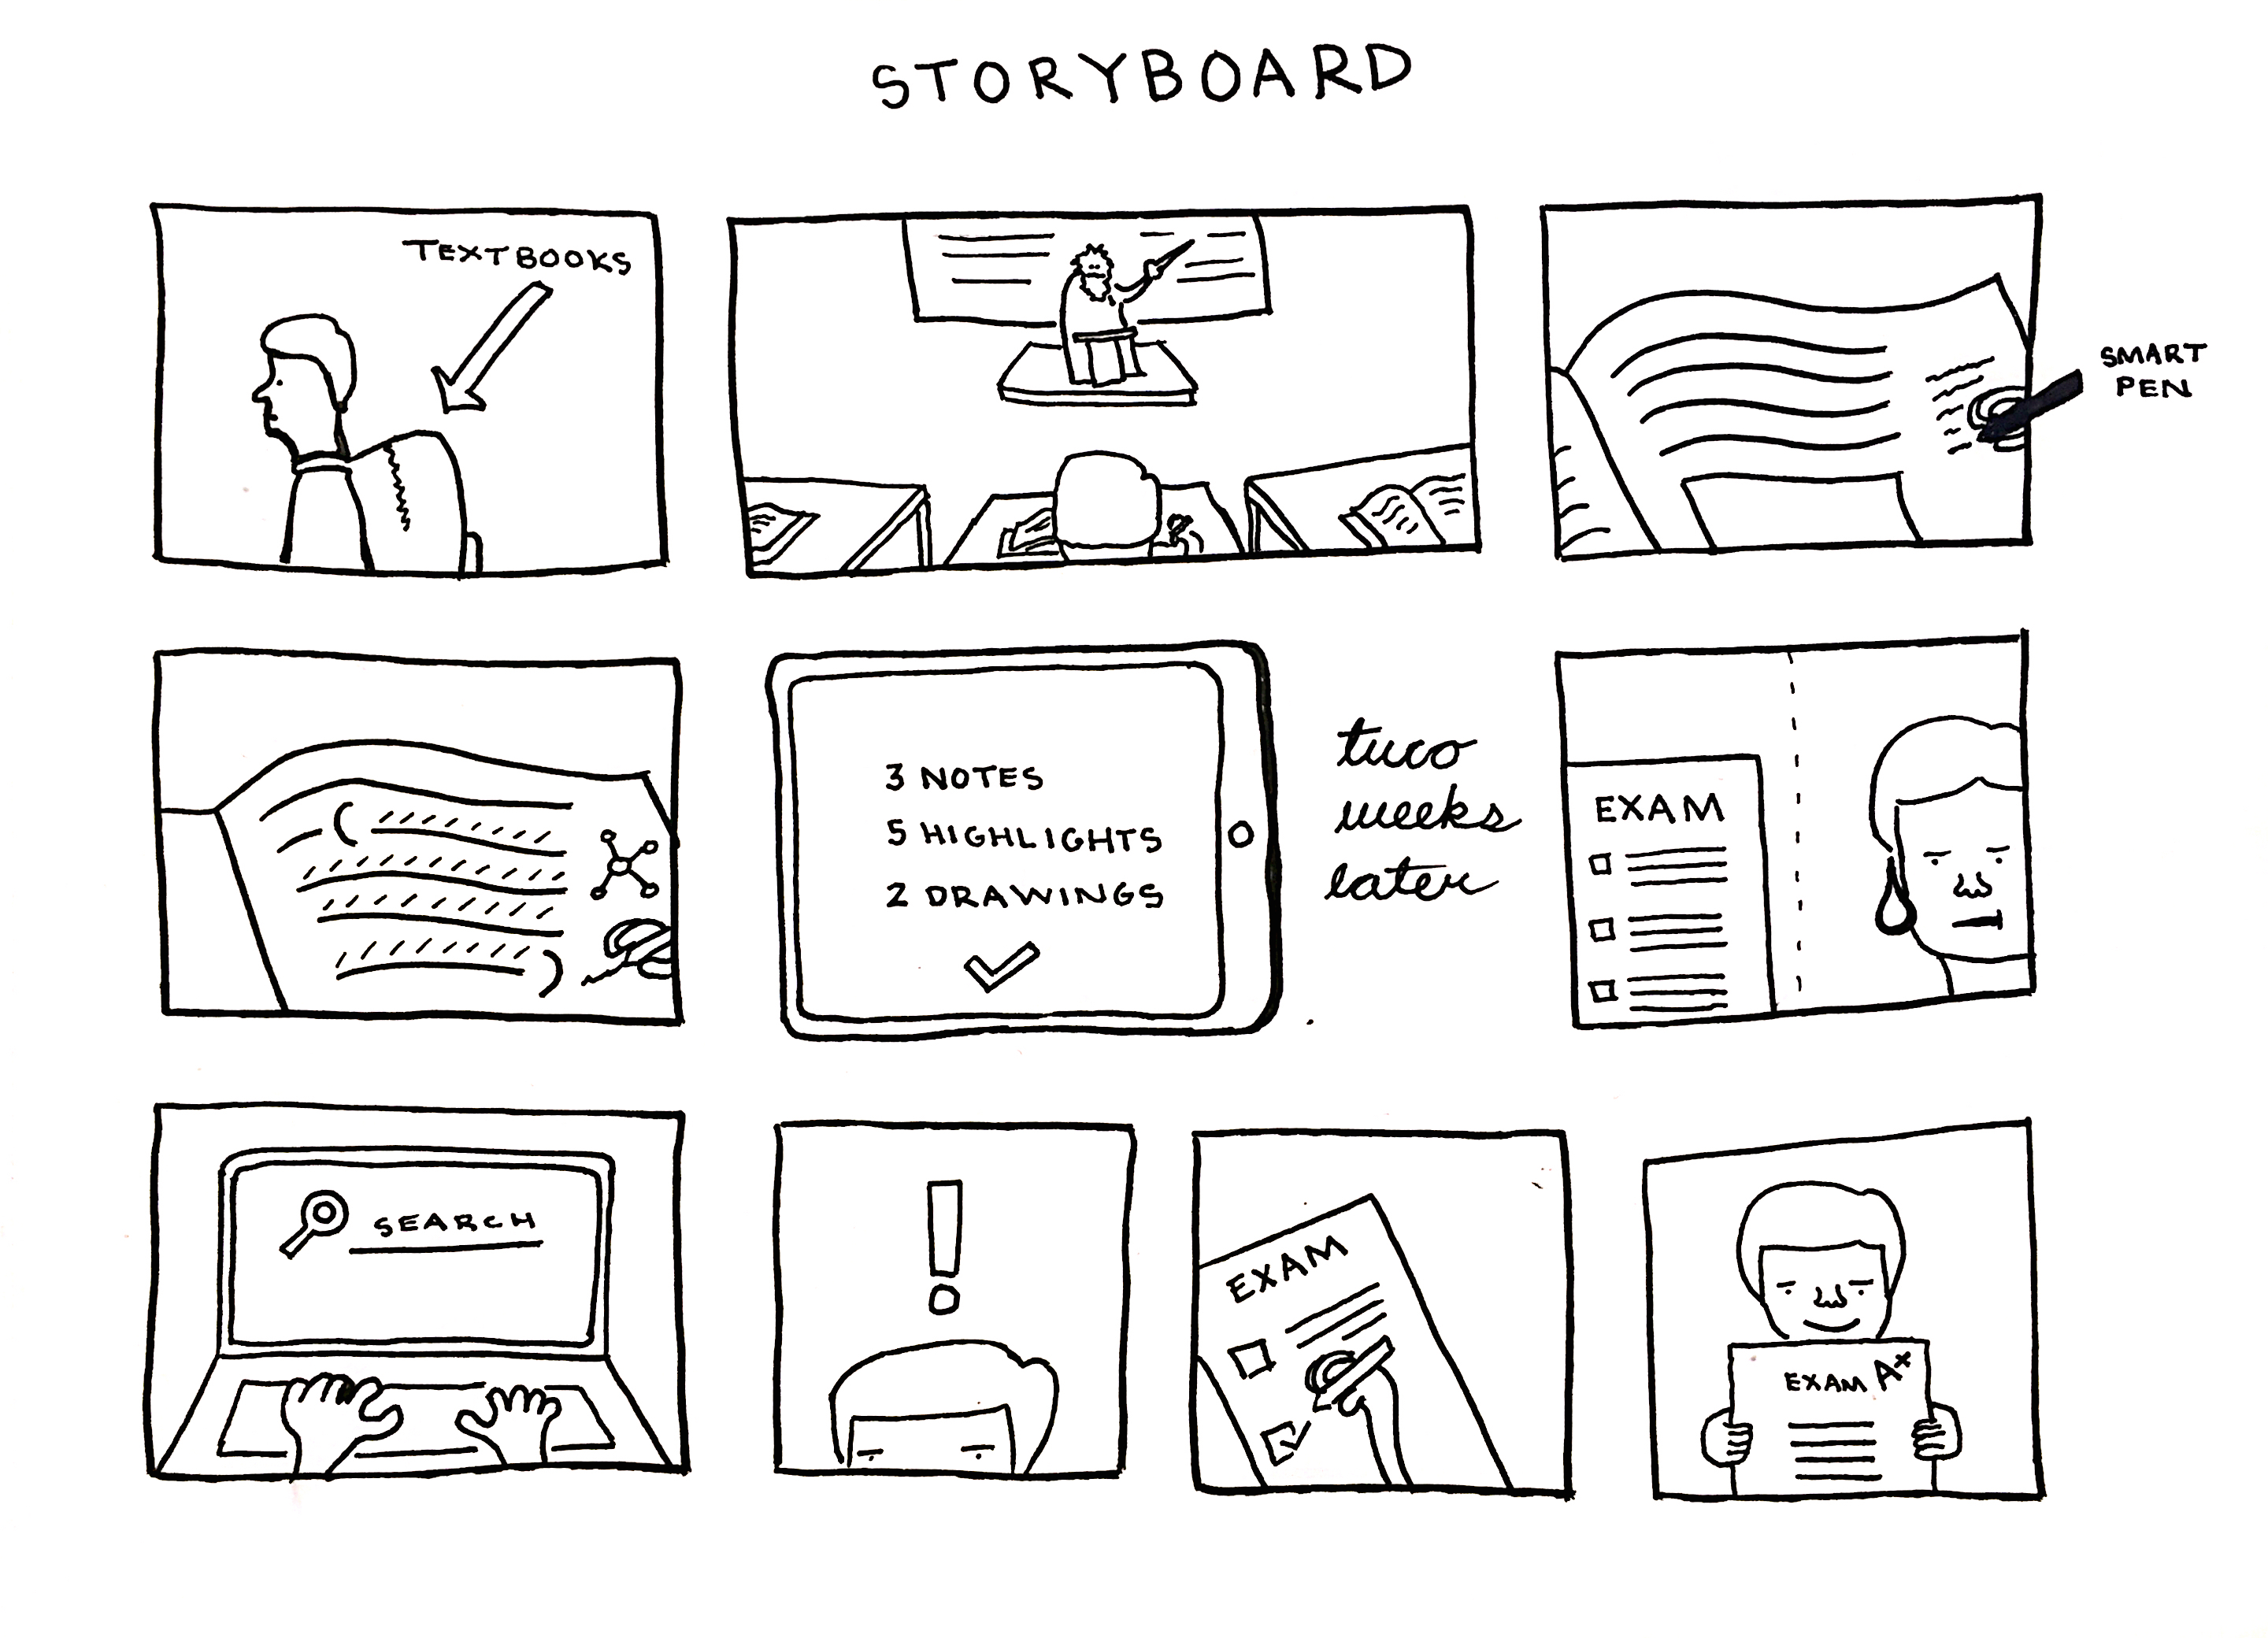 STORYBOARD
TEXTBOOKS
SMART
PEN
3 NOTES
5 HIGHLIGHTS
2 DRAWINGS
two
weeks
later
EXAM
SEARCH
!
EXAM
EXAM A+